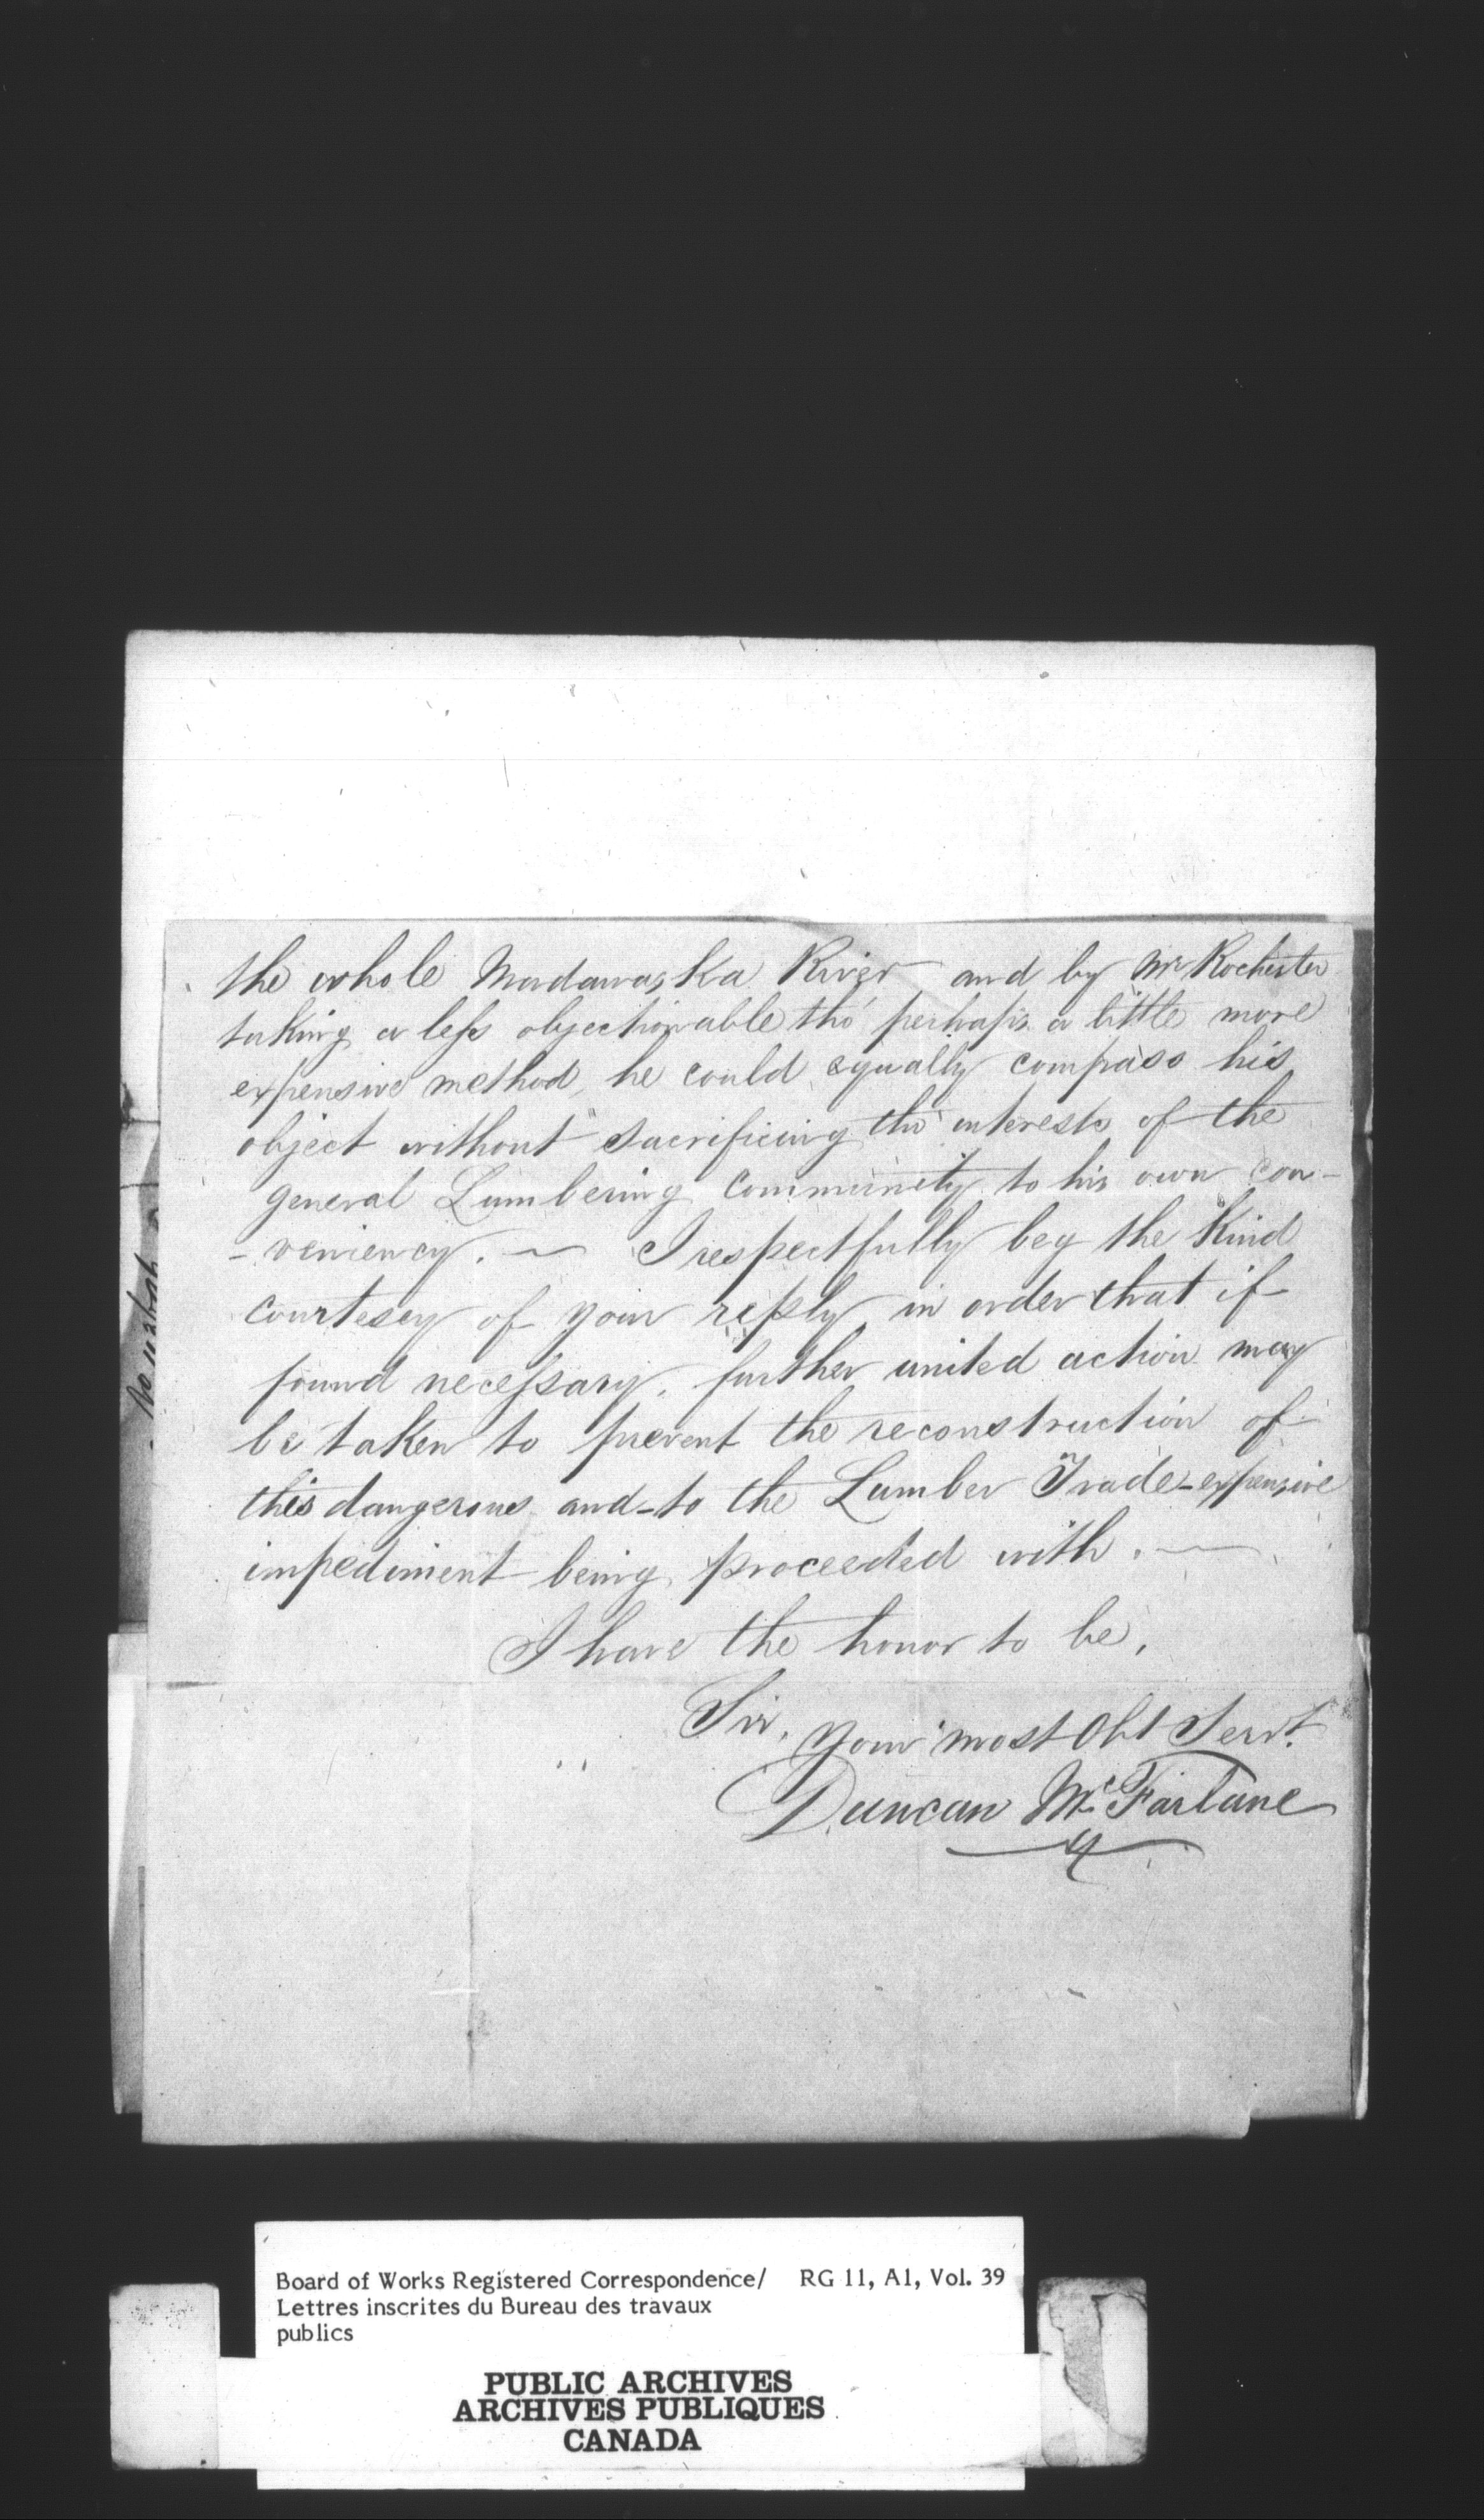 the whole Madawaska River and by Mr Rochester
taking a less objectionable tho' perhaps a little more
expensive method, he could equally compass his
object without sacrificing the interests of the
general Lumbering Community to his own con-
-veniency. — I respectfully beg the kind
courtesey of your reply in order that if
found necessary, further united action may
be taken to prevent the reconstruction of
this dangerous and-to the Lumber Trade-expensive
impediment being proceeded with. —
I have the honor to be,
Sir,
your most Obt Servt.
Duncan McFarlane
Board of Works Registered Correspondence/ RG 11, A1, Vol. 39
Lettres inscrites du Bureau des travaux
publics
PUBLIC ARCHIVES
ARCHIVES PUBLIQUES
CANADA